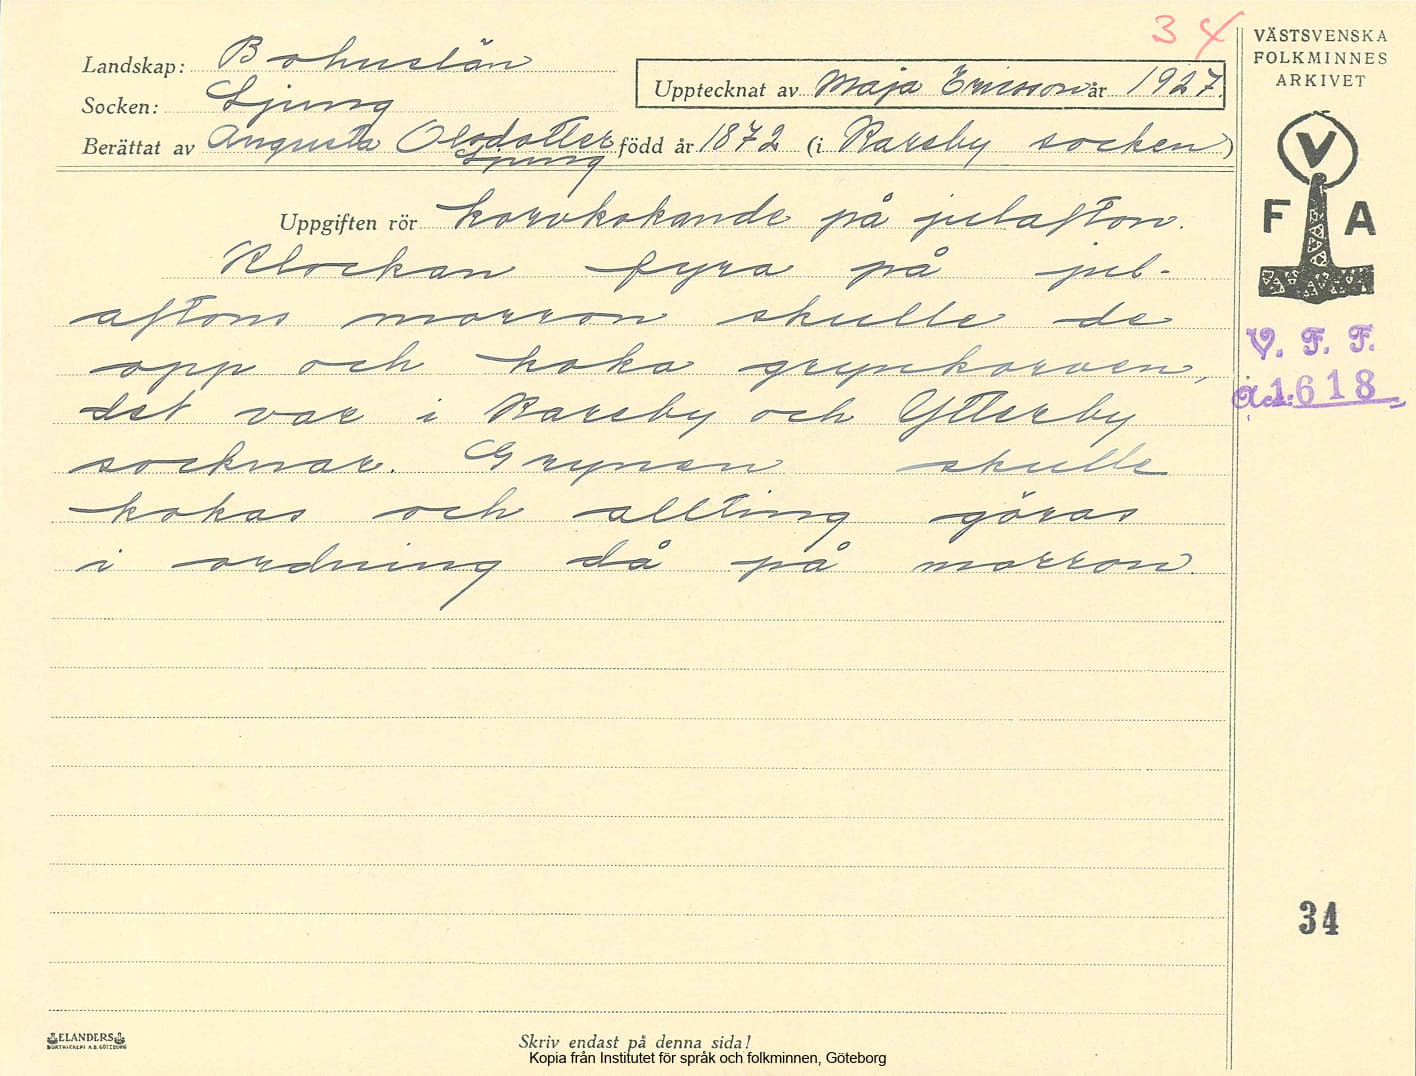 34
VÄSTSVENSKA
FOLKMINNES
ARKIVET
Landskap: Bohuslän
Socken: Ljung
Upptecknat av Maja Ericsson år 1927.
Berättat av Augusta Olsdotter född år 1872 (i Kareby socken)
Ljung
V
F A
Uppgiften rör korvkokande på julafton.
Klockan fyra på jul-
aftons morron skulle de
opp och koka grynkorven,
det var i Kareby och Ytterby
socknar. Grynen skulle
kokas och allting göras
i ordning då på morron.
V. F. F.
Acc: 1618
34
ELANDERS
BOKTRYCKERI A.B. GÖTEBORG
Skriv endast på denna sida!
Kopia från Institutet för språk och folkminnen, Göteborg